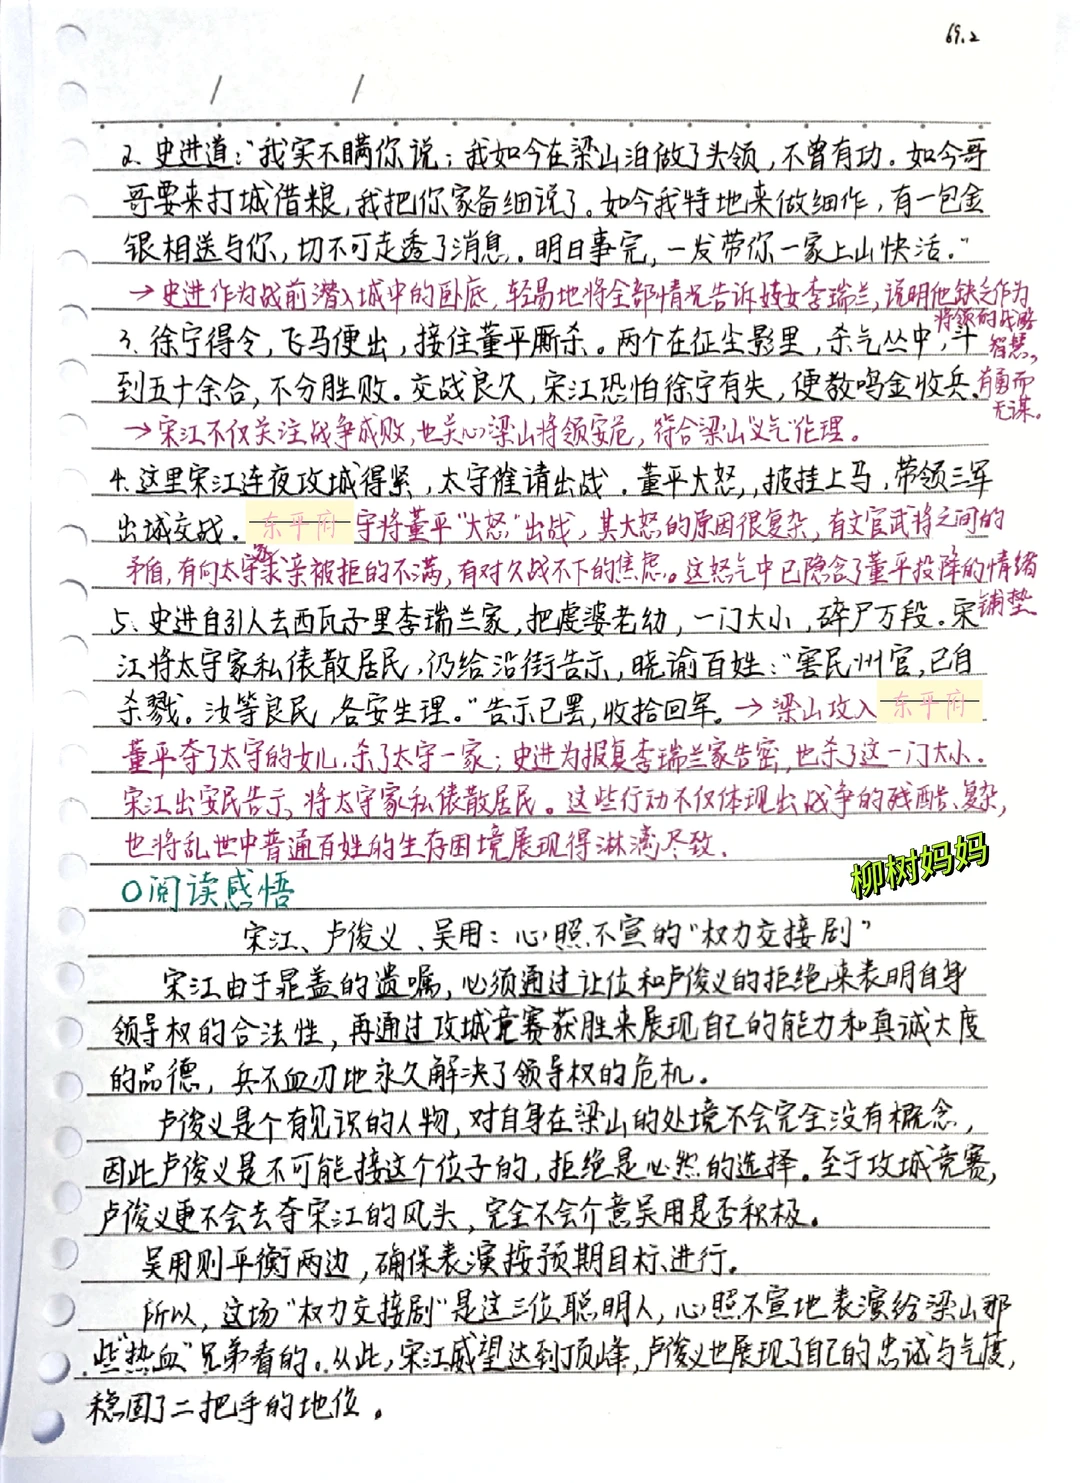 69.2
2、史进道：“我实不瞒你说；我如今在梁山泊做了头领，不曾有功。如今哥
哥要来打城借粮，我把你家备细说了。如今我特地来做细作，有一包金
银相送与你，切不可走透了消息。明日事完，一发带你一家上山快活。”
→史进作为战前潜入城中的卧底，轻易地将全部情况告诉妓女李瑞兰，说明他缺乏作为
将领的战略
智慧，
有勇而
无谋。
3、徐宁得令，飞马便出，接住董平厮杀。两个在征尘影里，杀气丛中，斗
到五十余合，不分胜败。交战良久，宋江恐怕徐宁有失，便教鸣金收兵。
→宋江不仅关注战争成败，也关心梁山将领安危，符合梁山“义气”伦理。
4.这里宋江连夜攻城得紧，太守催请出战．董平大怒，披挂上马，带领三军
出城交战．东平府守将董平“大怒”出战，其大怒的原因很复杂，有文官武将之间的
矛盾，有向太守求亲被拒的不满，有对久战不下的焦虑。这怒气中已隐含了董平投降的情绪
铺垫
5、史进自引人去西瓦子里李瑞兰家，把虔婆老幼，一门大小，碎尸万段．宋
江将太守家私俵散居民，仍给沿街告示，晓谕百姓：“害民州官，已自
杀戮。汝等良民，各安生理。”告示已罢，收拾回军。→梁山攻入东平府
董平夺了太守的女儿，杀了太守一家；史进为报复李瑞兰家告密，也杀了这一门大小．
宋江出安民告示，将太守家私俵散居民。这些行动不仅体现出战争的残酷、复杂，
也将乱世中普通百姓的生存困境展现得淋漓尽致、
柳树妈妈
○阅读感悟
宋江、卢俊义、吴用：心照不宣的“权力交接剧”
宋江由于晁盖的遗嘱，必须通过让位和卢俊义的拒绝来表明自身
领导权的合法性，再通过攻城竞赛获胜来展现自己的能力和真诚大度
的品德，兵不血刃地永久解决了领导权的危机。
卢俊义是个有见识的人物，对自身在梁山的处境不会完全没有概念，
因此卢俊义是不可能接这个位子的，拒绝是必然的选择。至于攻城竞赛，
卢俊义更不会去夺宋江的风头，完全不会介意吴用是否积极。
吴用则平衡两边，确保表演按预期目标进行。
所以，这场“权力交接剧”是这三位聪明人，心照不宣地表演给梁山那
些“热血”兄弟看的。从此，宋江威望达到顶峰，卢俊义也展现了自己的忠诚与气度，
稳固了二把手的地位。